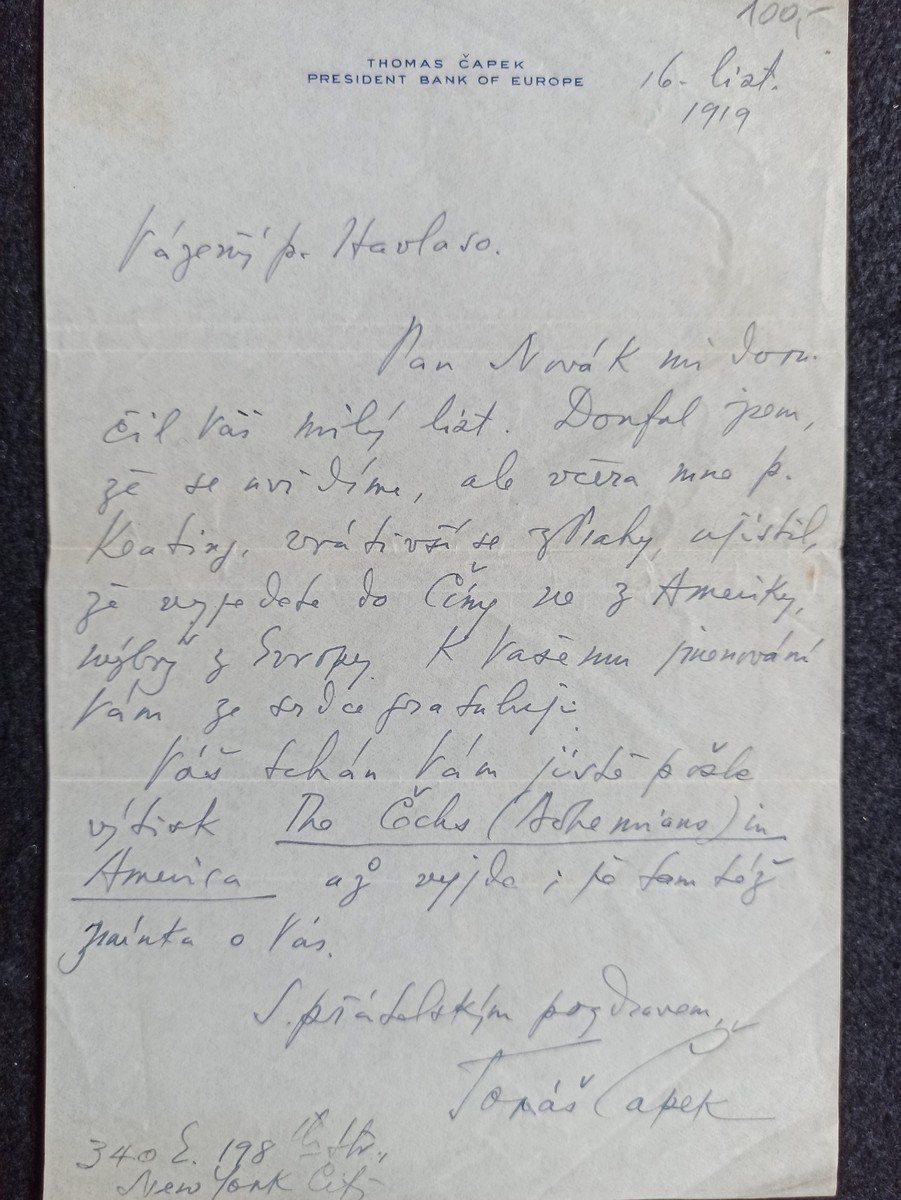 100,-
THOMAS ČAPEK
PRESIDENT BANK OF EUROPE
16. list.
1919
Vážený p. Havlaso.
Pan Novák mi doru-
čil Váš milý list. Doufal jsem,
že se uvidíme, ale včera mne p.
Keating, vrátivší se z Prahy, ujistil,
že vyjedete do Číny ne z Ameriky,
nýbrž z Evropy. K Vašemu jmenování
Vám ze srdce gratuluji.
Váš tchán Vám jistě pošle
výtisk The Čechs (Bohemians) in
America až vyjde; je tam též
zmínka o Vás.
S přátelským pozdravem,
Tomáš Čapek
340 E. 198th Str.,
New York City